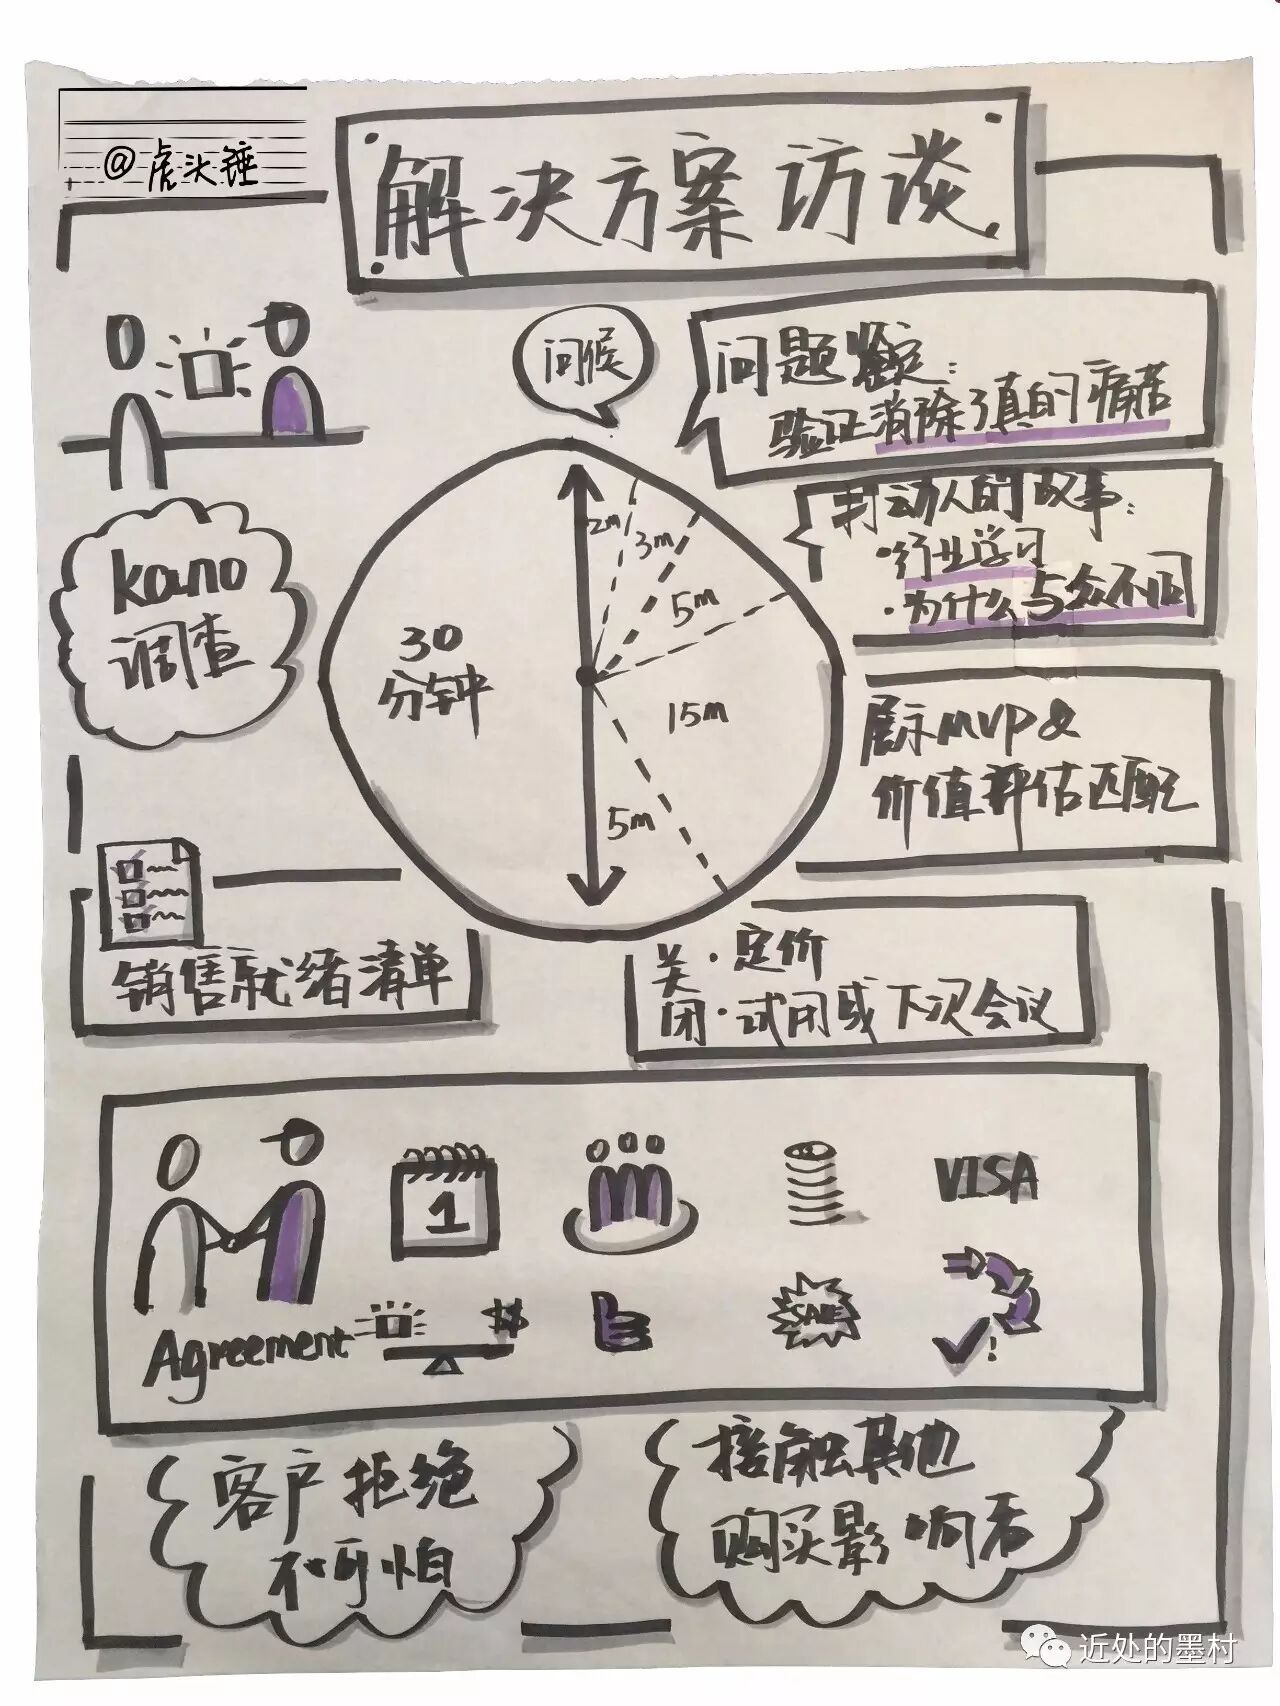 @虎头锤
解决方案访谈
问候
问题鉴定:
验证消除了真的痛苦
打动人的故事:
·行业学习
·为什么与众不同
2m
3m
5m
15m
5m
30
分钟
kano
调查
展示MVP&
价值评估匹配
销售就绪清单
关闭
·定价
·试用或下次会议
1
VISA
Agreement
$$
SALE
!
客户拒绝
不可怕
接触其他
购买影响者
近处的墨村